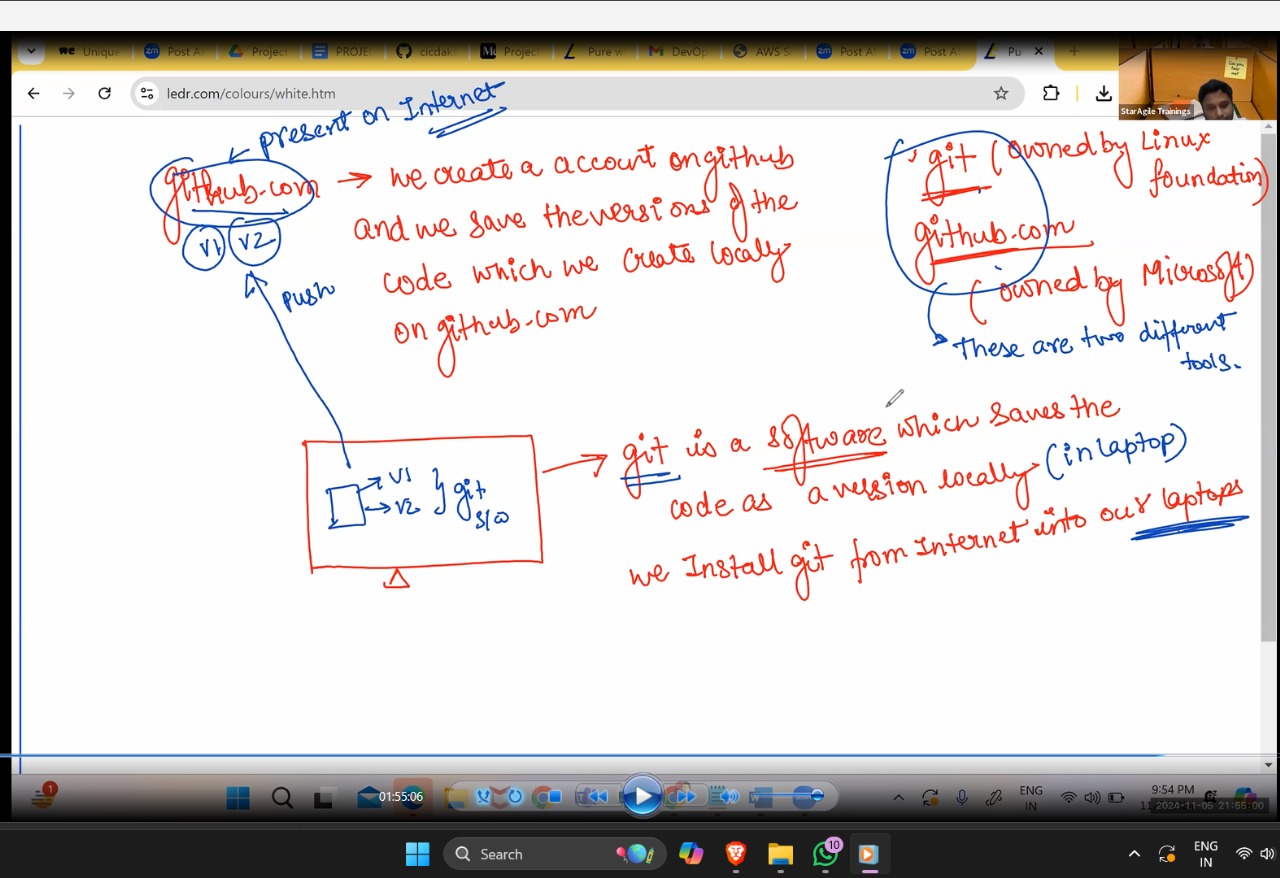 we Unique
zm Post A
Project
PROJE
cicdak
Project
Pure w
DevOp
AWS S
zm Post A
zm Post A
Pu
Can you hear me?
StarAgile Trainings
ledr.com/colours/white.htm
present on Internet
github.com → we create a account on github
and we save the versions of the
code which we create localy
on github.com
V1 V2
push
git (owned by Linux
foundation)
github.com
(owned by Microsoft)
These are two different
tools.
→ git is a software which saves the
code as a version locally (in laptop)
we Install git from Internet into our laptops
V1
V2 } git
s/w
1
01:55:06
ENG
IN
9:54 PM
2024-11-05 21:55:00
Search
10
ENG
IN